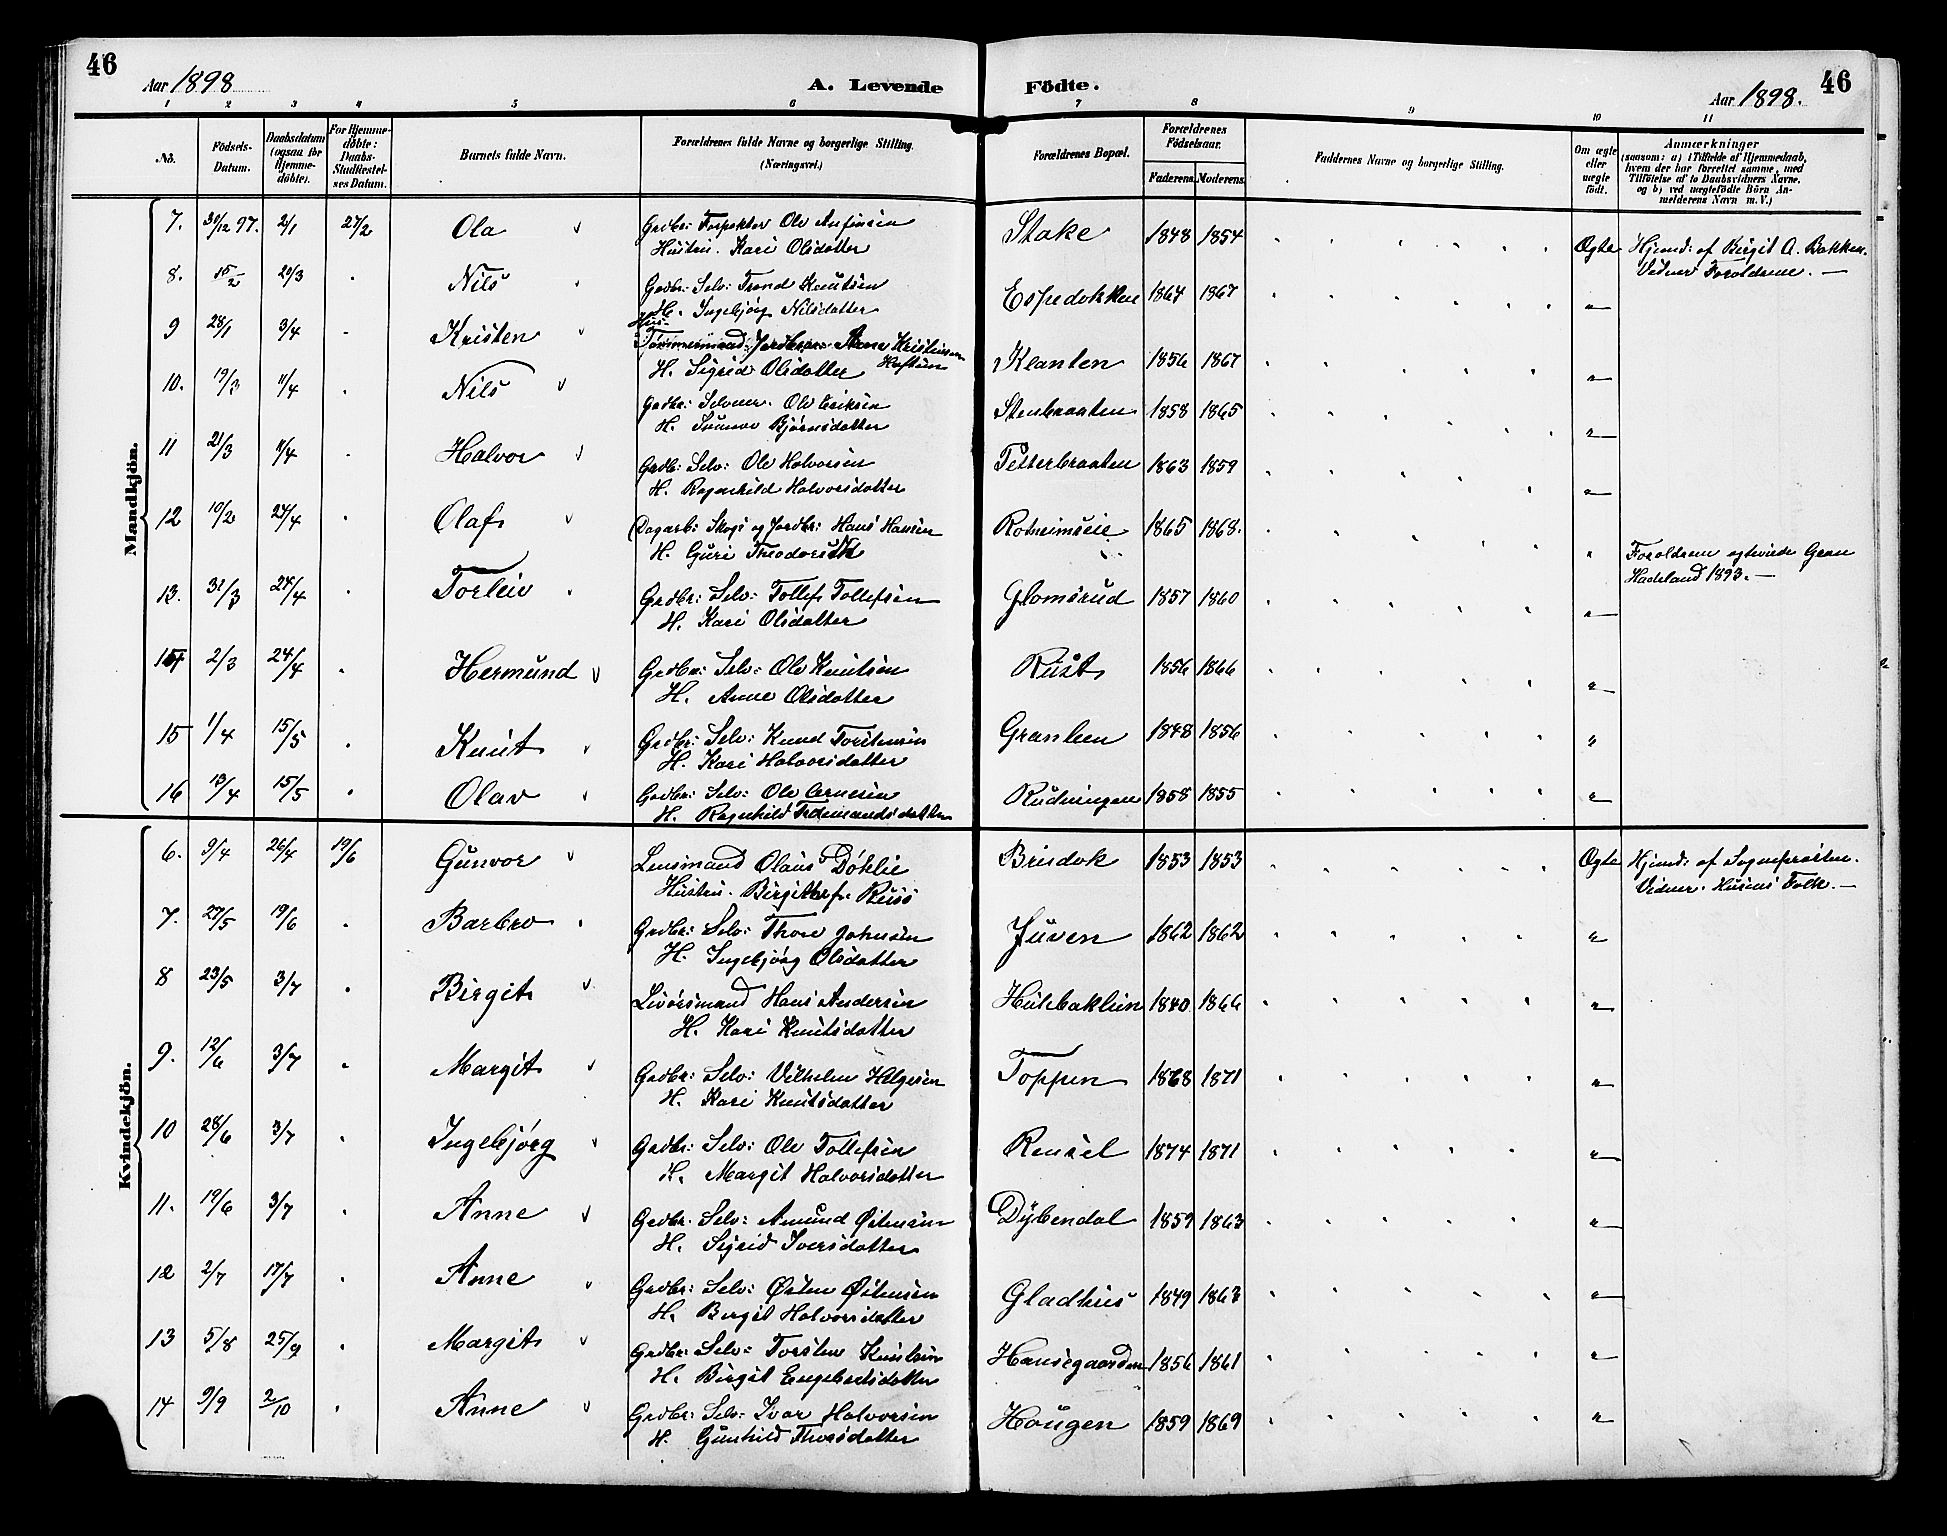 46
Aar 1898
A. Levende Födte.
Aar 1898.
46
1 2 3 4 5 6 7 8 9 10 11
No.
Födsels-Datum.
Daabsdatum (ogsaa for Hjemme-döbte).
For Hjemme-döbte: Daabs-Stadfæstel-ses Datum.
Barnets fulde Navn.
Forældrenes fulde Navne og borgerlige Stilling. (Næringsvei.)
Forældrenes Bopæl.
Forældrenes Födselsaar.
Faderens Moderens
Faddernes Navne og borgerlige Stilling.
Om ægte eller uægte födt.
Anmærkninger
(saasom: a) i Tilfælde af Hjemmedaab, hvem der har forrettet samme, med Tilföielse af to Daabsvidners Navne, og b) ved uægtefödte Börn An-melderens Navn m. V.)
Mandkjön.
7. 31/12 97. 2/1 27/2 Ola Grdbr: Ole Anfinsen Stake 1848 1854 Ægte Hjemd: af Birgit A. Bakken.
Hustru. Kari Olsdatter Vidner Foroldrene. —
8. 15/2 20/3 " Nils Grdbr: Selv: Trond Knutsen Espedokken 1864 1867 "
H. Ingebjørg Nilsdatter
9 28/1 3/4 " Kristen Hus- Tømmermand: Jordbr: Arne Kristensen Klanten 1856 1867 "
H. Sigrid Olsdatter
10. 19/3 11/4 " Nils Grdbr: Selveier. Ole Eriksen Stenbraaten 1858 1865 "
H. Sünnev Bjørnsdatter
11 21/3 11/4 " Halvor Grdb: Selv: Ole Halvorsen Petterbraaten 1863 1859 "
H. Ragnhild Halvorsdatter
12 10/2 24/4 " Olaf Dagarb: Skogs og Jordbr: Hans Hansen Roheimseie 1865 1868. " Foroldrene ægteviede Gran
H. Guri Hadeland 1893. —
13. 31/3 24/4 " Torleiv Grdbr: Selv: Tollef Tollefsen Glomsrud 1857 1860 "
H. Kari Olsdatter
14 2/3 24/4 " Hermund Grdbr: Selv: Ole Knutsen Rust 1856 1866 "
H. Anne Olsdatter
15 1/4 15/5 " Knut Grdbr: Selv: Knud Torstensen Granheen 1848 1856 "
H. Kari Halvorsdatter
16 13/4 15/5 " Olav Grdbr: Selv: Ole Arnesen Rudningen 1858 1855 "
H. Ragnhild
Kvindekjön.
6. 9/4 26/4 19/6 Gunvor Lensmand Olaus Døhlie Brudok 1853 1853 Ægte Hjemd: af Sognepræsten.
Hustru. Birgitte f. Russ Vidner. Husens Folk. —
7. 27/5 19/6 " Barbro Grdbr: Selv: Thore Johnsen Juven 1862 1862 "
H. Ingebjørg Olsdatter
8 23/5 3/7 " Birgit Livørsmand Hans Andersen Hulebaklien 1840 1866 "
H. Kari Knutsdatter
9. 12/6 3/7 " Margit Grdbr: Selv: Vilhelm Helgesen Toppen 1868 1871 "
H. Kari Knutsdatter
10 28/6 3/7 " Ingebjørg Grdbr: Selv: Ole Tollefsen Rensel 1874 1871 "
H. Margit Halvorsdatter
11. 19/6 3/7 " Anne Grdbr. Selv: Amund Østensen Dybendal 1859 1863 "
H. Sigrid Iversdatter
12 2/7 17/7 " Anne Grdbr: Selv: Østen Østensen Gladhus 1849 1863 "
H. Birgit Halvorsdatter
13 5/8 25/9 " Margit Grdbr: Selv: Torsten Knutsen Hansegaarden 1856 1861 "
H. Birgit Engebretsdatter
14 9/9 2/10 " Anne Grdbr: Selv: Ivar Halvorsen Haugen 1859 1869 "
H. Gunhild Thorsdatter